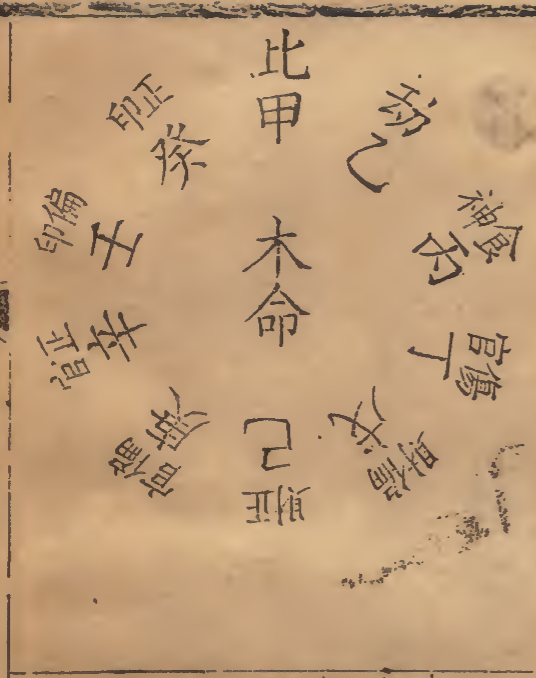 比
甲
乙
食神
丙
傷官
丁
偏財
戊
正財
己
偏官
庚
正官
辛
偏印
壬
正印
癸
木命